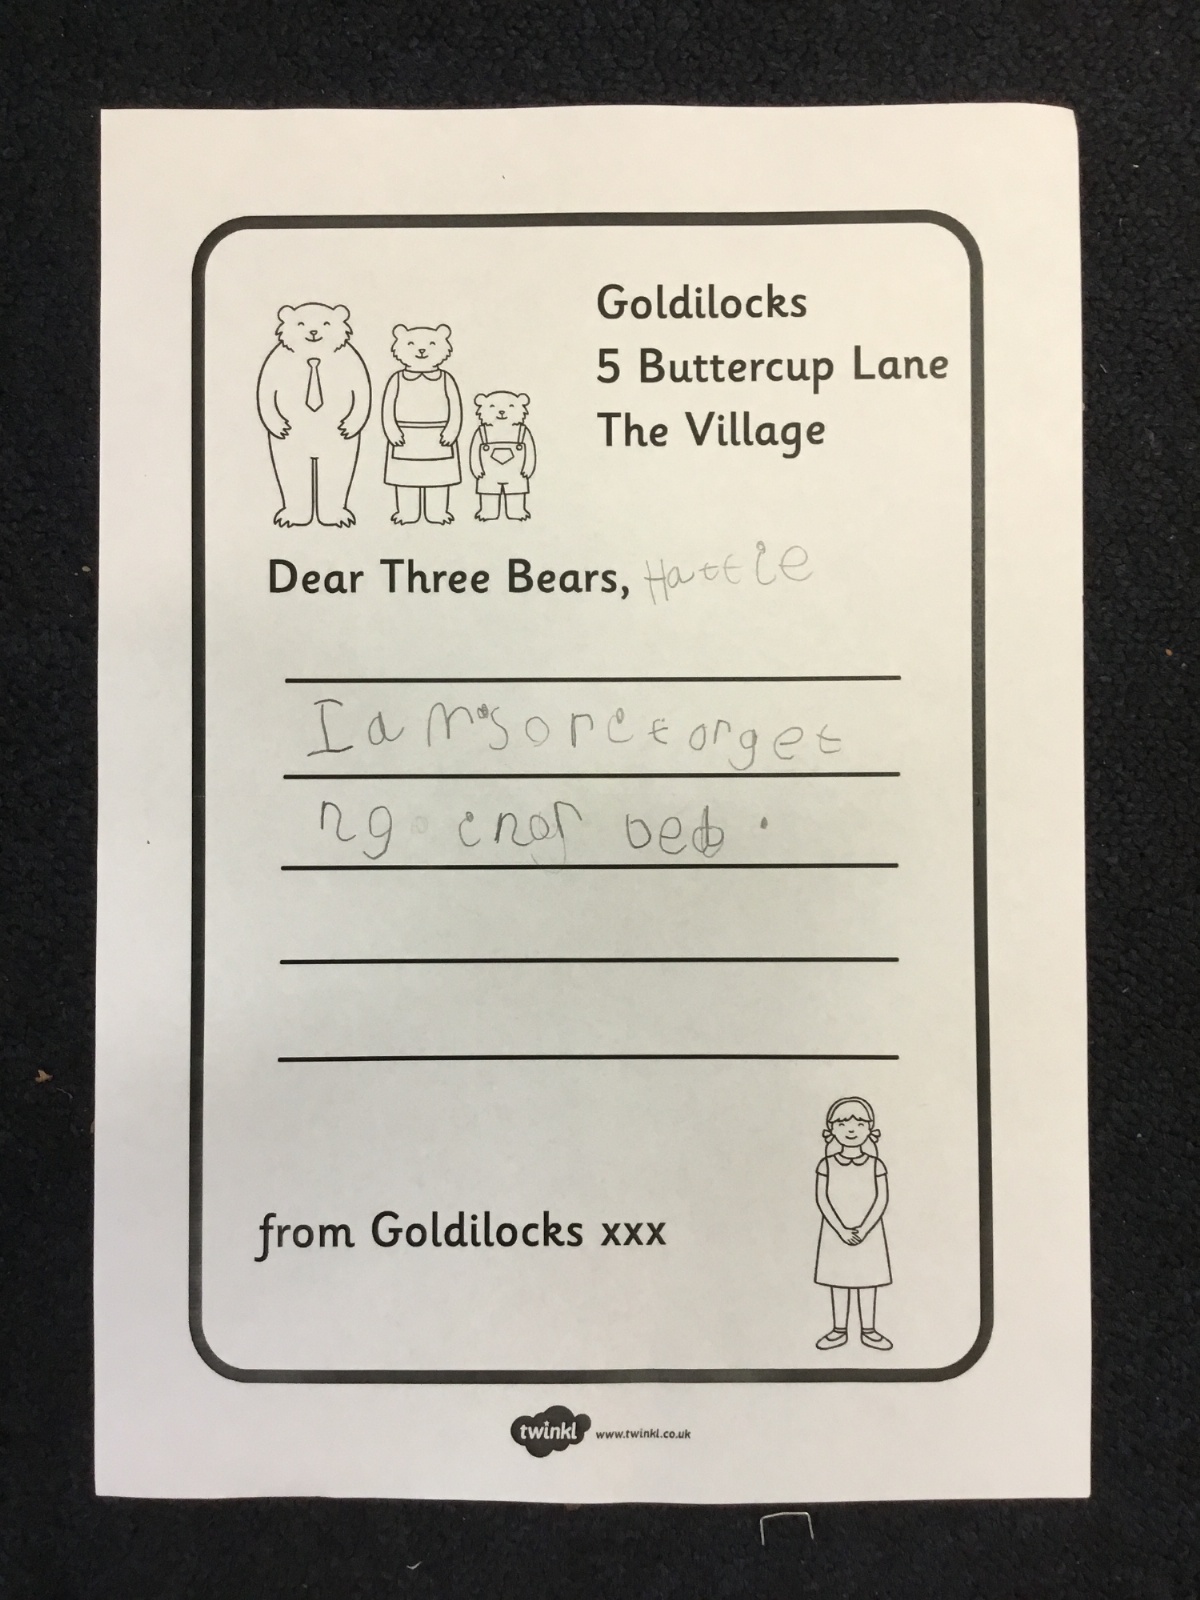 Goldilocks
5 Buttercup Lane
The Village
Dear Three Bears, Hattie
I am sorc for get
ng in bed.
from Goldilocks xxx
twinkl www.twinkl.co.uk